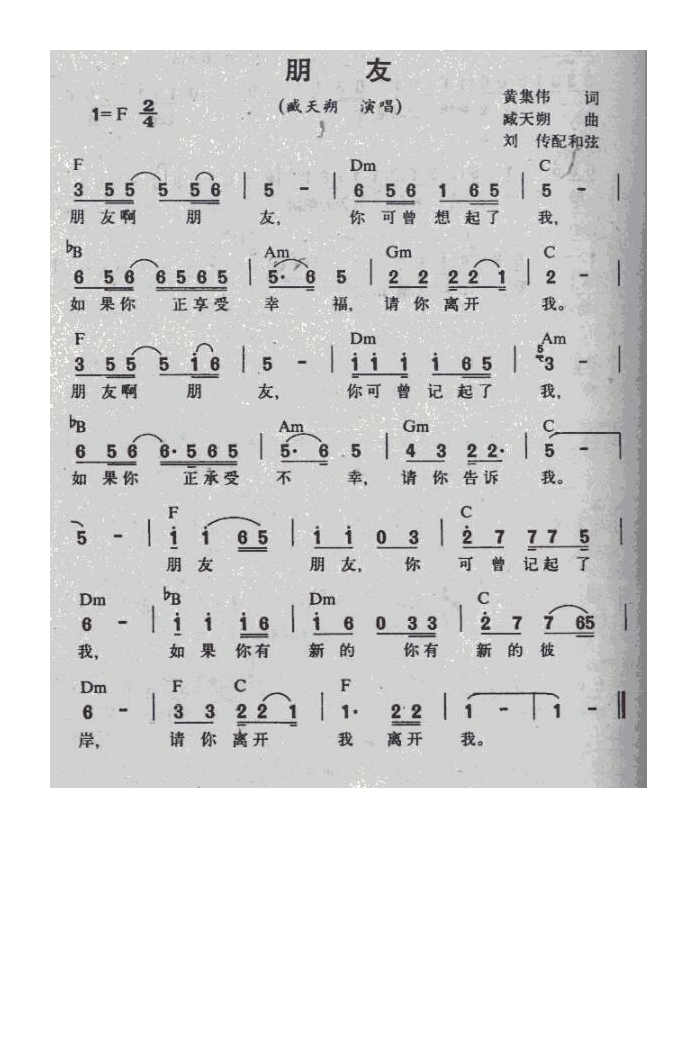 朋 友
1=F 2/4 (臧天朔 演唱) 黄集伟 词
臧天朔 曲
刘 传配和弦
F Dm C
3 5 5 5 5 6 | 5 - | 6 5 6 1 6 5 | 5 - |
朋 友啊 朋 友, 你 可曾 想 起了 我,
♭B Am Gm C
6 5 6 6 5 6 5 | 5· 6 5 | 2 2 2 2 1 | 2 - |
如 果你 正享受 幸 福, 请你离开 我。
F Dm Am
3 5 5 5 i 6 | 5 - | i i i i 6 5 | 5 3 - |
朋 友啊 朋 友, 你可曾记起了 我,
♭B Am Gm C
6 5 6 6· 5 6 5 | 5· 6 5 | 4 3 2 2· | 5 - |
如 果你 正承受 不 幸, 请你告诉 我。
F C
5 - | i i 6 5 | i i 0 3 | 2 7 7 7 5 |
朋友 朋友, 你 可曾记起了
Dm ♭B Dm C
6 - | i i i 6 | i 6 0 3 3 | 2 7 7 6 5 |
我, 如果你有 新的 你有 新的彼
Dm F C F
6 - | 3 3 2 2 1 | 1· 2 2 | 1 - | 1 - ‖
岸, 请你离开 我 离开 我。